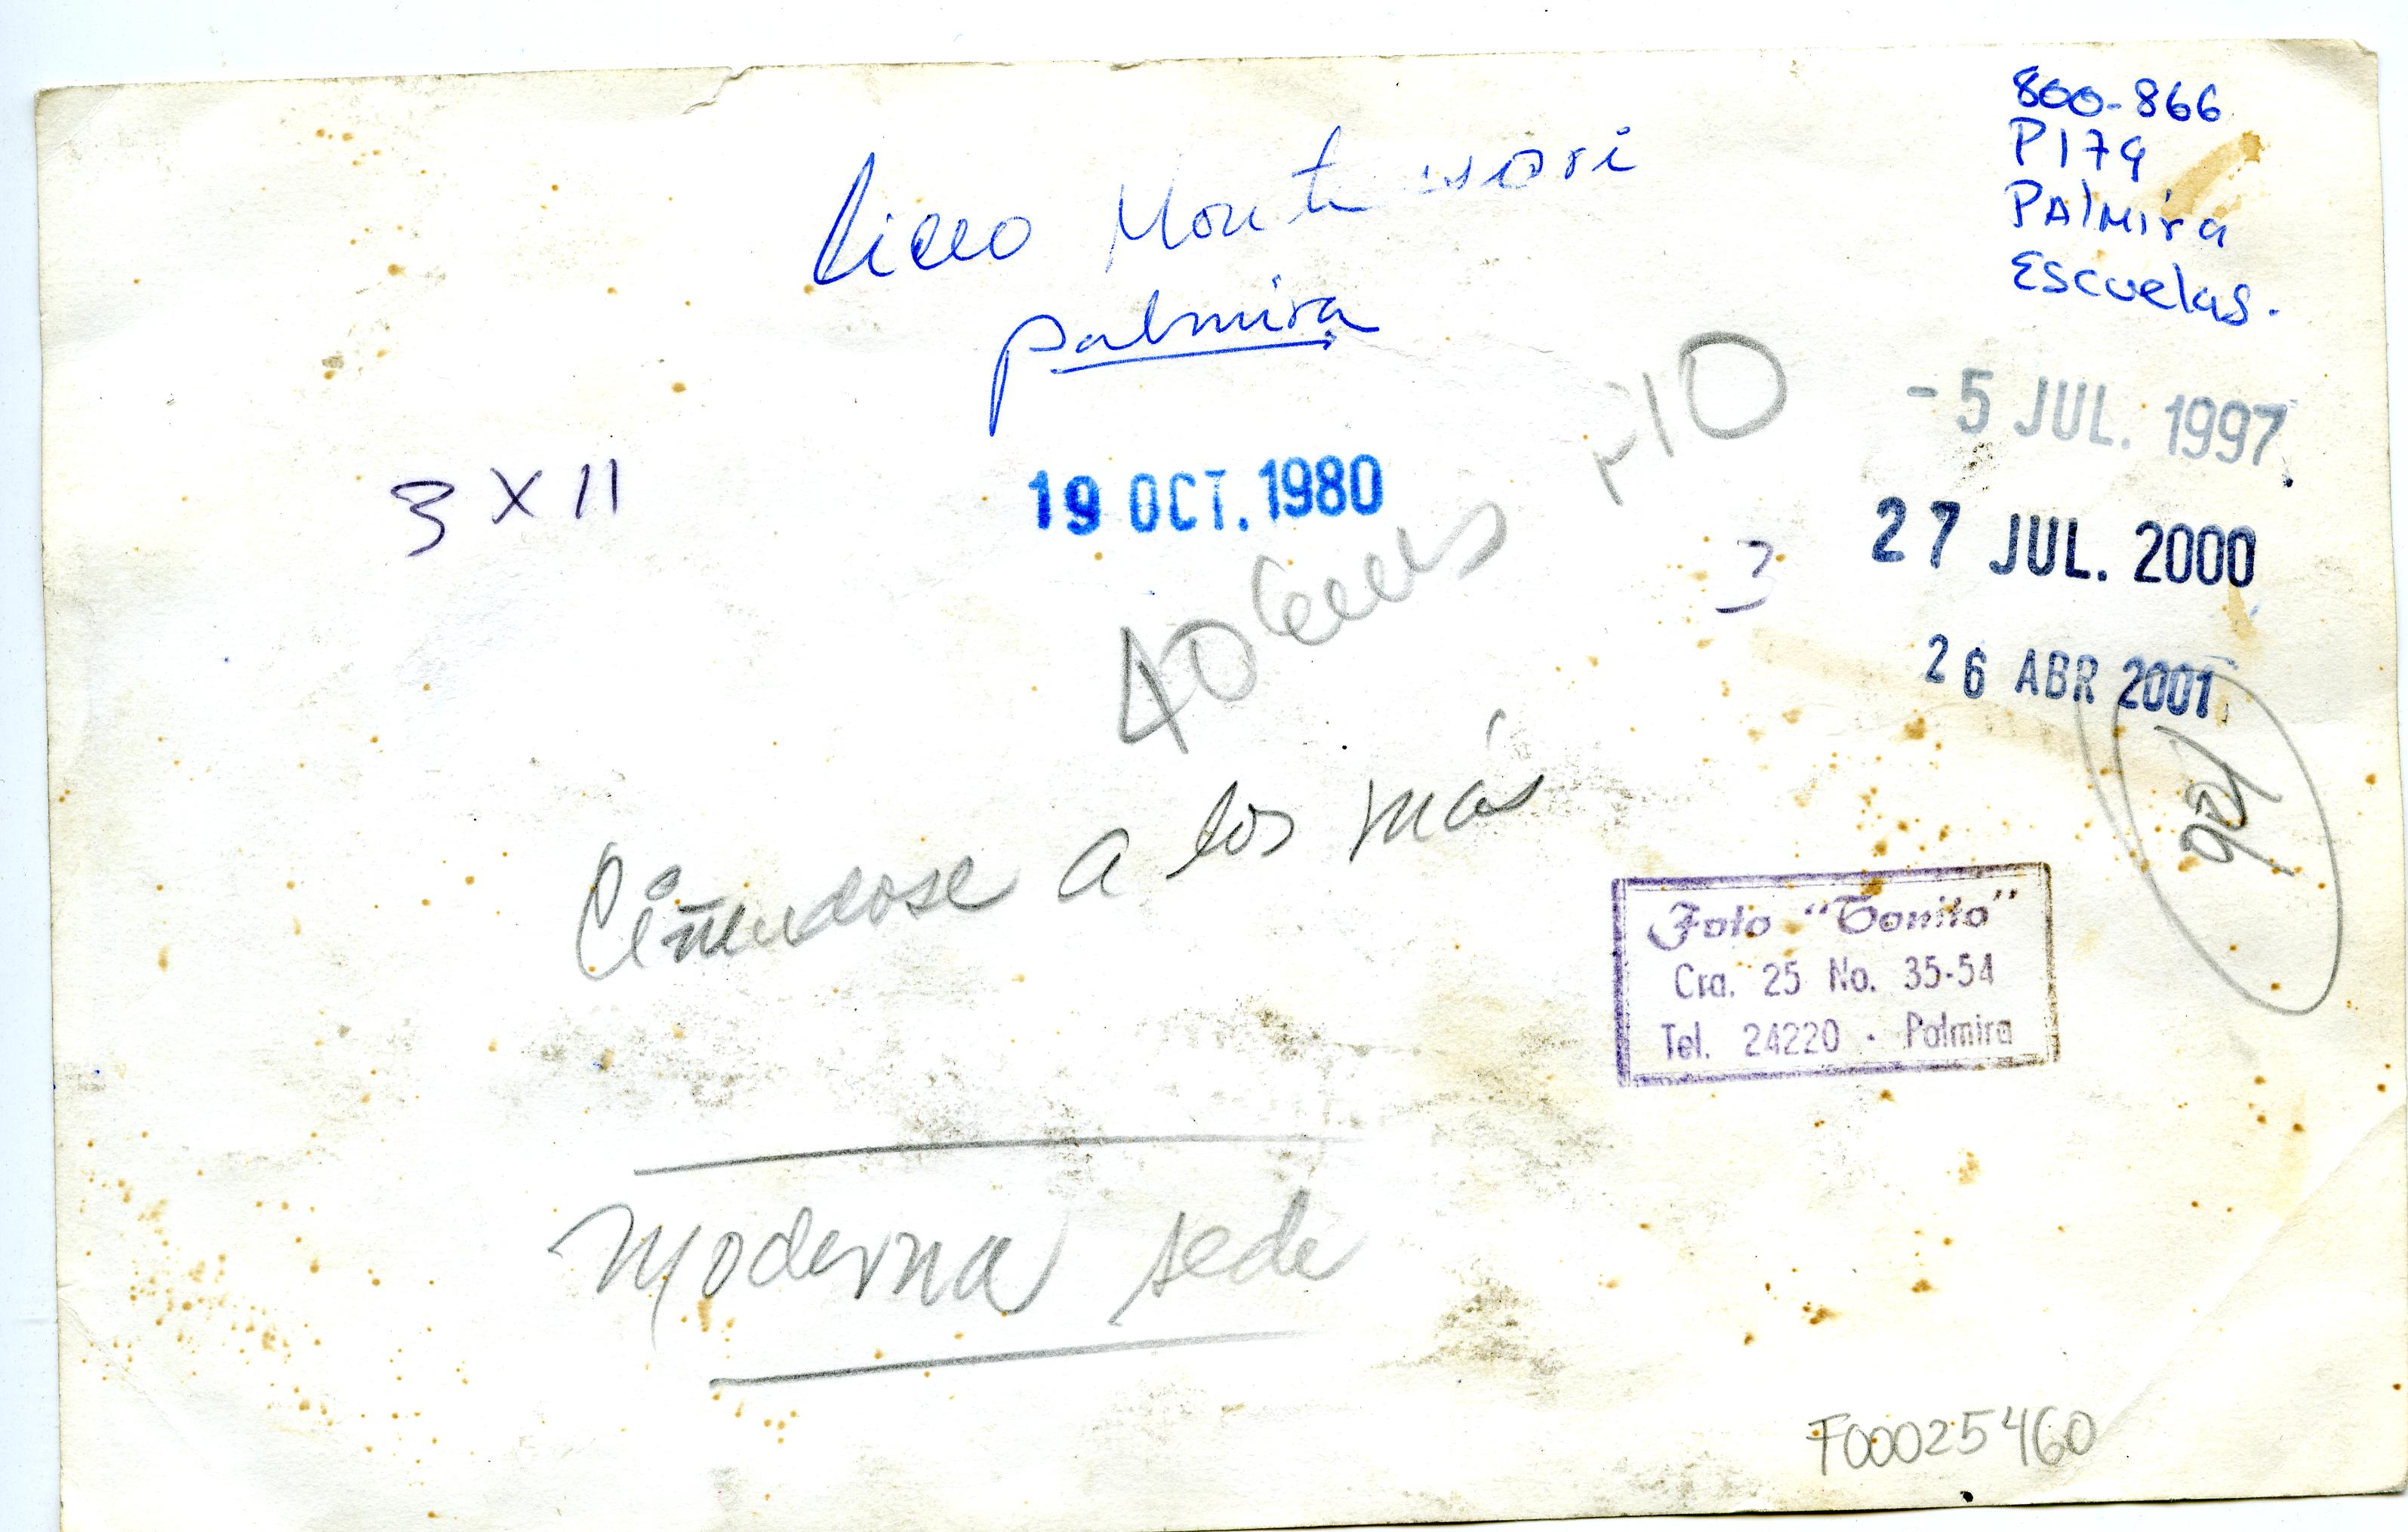 800-866
P179
PAlmira
Escuelas.
Liceo Montessori
palmira
- 5 JUL. 1997
3 X 11
19 OCT. 1980
10
27 JUL. 2000
3
40
26 ABR 2001
Ciñendose a los más
Foto "Tonito"
Cra. 25 No. 35-54
Tel. 24220 - Palmira
Moderna sede
F00025460